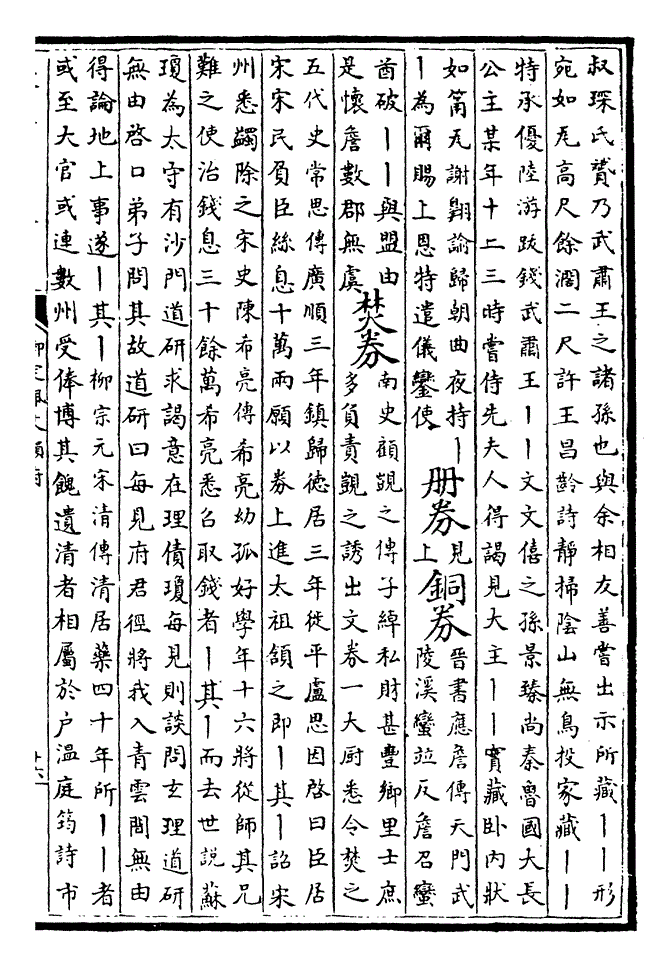 叔琛氏贇乃武肅王之諸孫也與余相友善嘗出示所藏丨丨形
宛如瓦高尺餘濶二尺許王昌齡詩靜掃陰山無鳥投家藏丨丨
特承優陸游跋錢武肅王丨丨文文僖之孫景臻尚秦魯國大長
公主某年十二三時嘗侍先夫人得謁見大主丨丨實藏卧内狀
如筩瓦謝翺論歸朝曲夜持丨
丨為爾賜上恩特遣儀鑾使
册券
見
上
銅券
晉書應詹傳天門武
陵溪蠻竝反詹召蠻
酋破丨丨與盟由
是懷詹數郡無虞
焚券
南史顧覬之傳子綽私財甚豐鄉里士庶
多負責覬之誘出文券一大厨悉令焚之
五代史常思傳廣順三年鎮歸徳居三年從平盧思因啓曰臣居
宋宋民負臣絲息十萬兩願以券上進太祖頷之即丨其丨詔宋
州悉蠲除之宋史陳希亮傳希亮幼孤好學年十六將從師其兄
難之使治錢息三十餘萬希亮悉召取錢者丨其丨而去世説蘇
瓊為太守有沙門道研求謁意在理債瓊每見則談問玄理道研
無由啓口弟子問其故道研曰每見府君徑將我入青雲間無由
得論地上事遂丨其丨柳宗元宋清傳清居藥四十年所丨丨者
或至大官或連數州受俸博其餽遺清者相屬於户温庭筠詩市